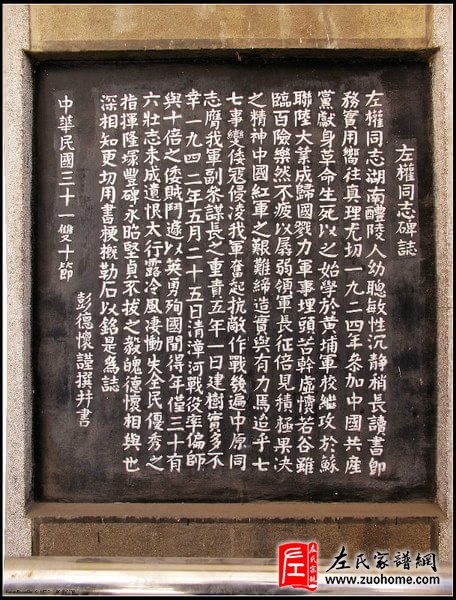 左權同志碑誌
左權同志湖南醴陵人幼聰敏性沉静稍長讀書卽
務實用嚮往真理尤切一九二四年参加中國共産
黨獻身革命生死以之始學於黄埔軍校繼攻於蘇
聯陸大業成歸國戮力軍事埋頭苦幹虚懷若谷雖
臨百險樂然不疲以孱弱領軍長征倍見積極果决
之精神中國紅軍之艱難締造實與有力焉迫乎七
七事變倭寇侵淩我軍奮起抗敵作戰幾遍中原同
志膺我軍副叅謀長之重責五年一日建樹實多不
幸一九四二年五月二十五日清漳河戰役率偏師
與十倍之倭賊鬥遽以英勇殉國聞得年僅三十有
六壯志未成遺恨太行露冷風凄慟失全民優秀之
指揮隆塚豐碑永昭堅貞不拔之毅魄德懷相與也
深相知更切用書梗概勒石以銘是為誌
中華民國三十一雙十節
彭德懷謹撰幷書
左氏家譜網
www.zuohome.com